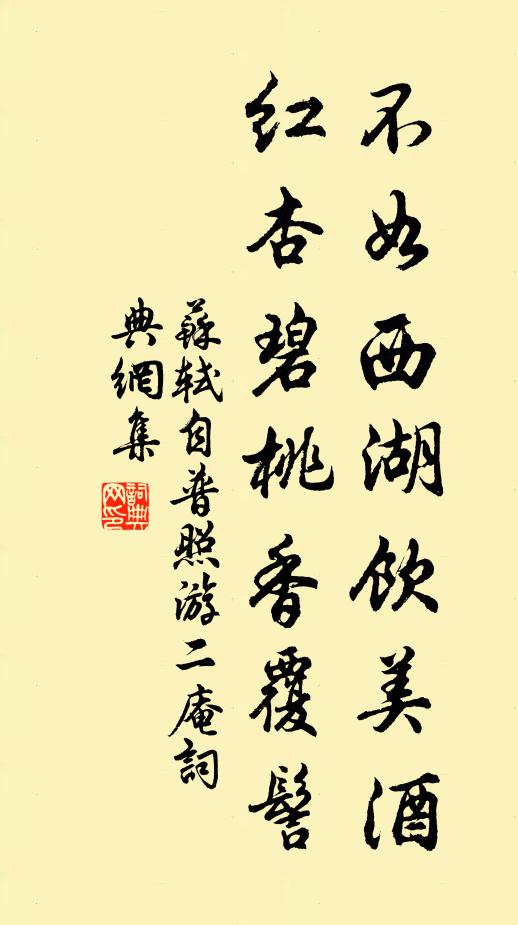 不如西湖飲美酒
紅杏碧桃香覆髻
蘇軾自普照游二庵詞
典網集
詞典网印